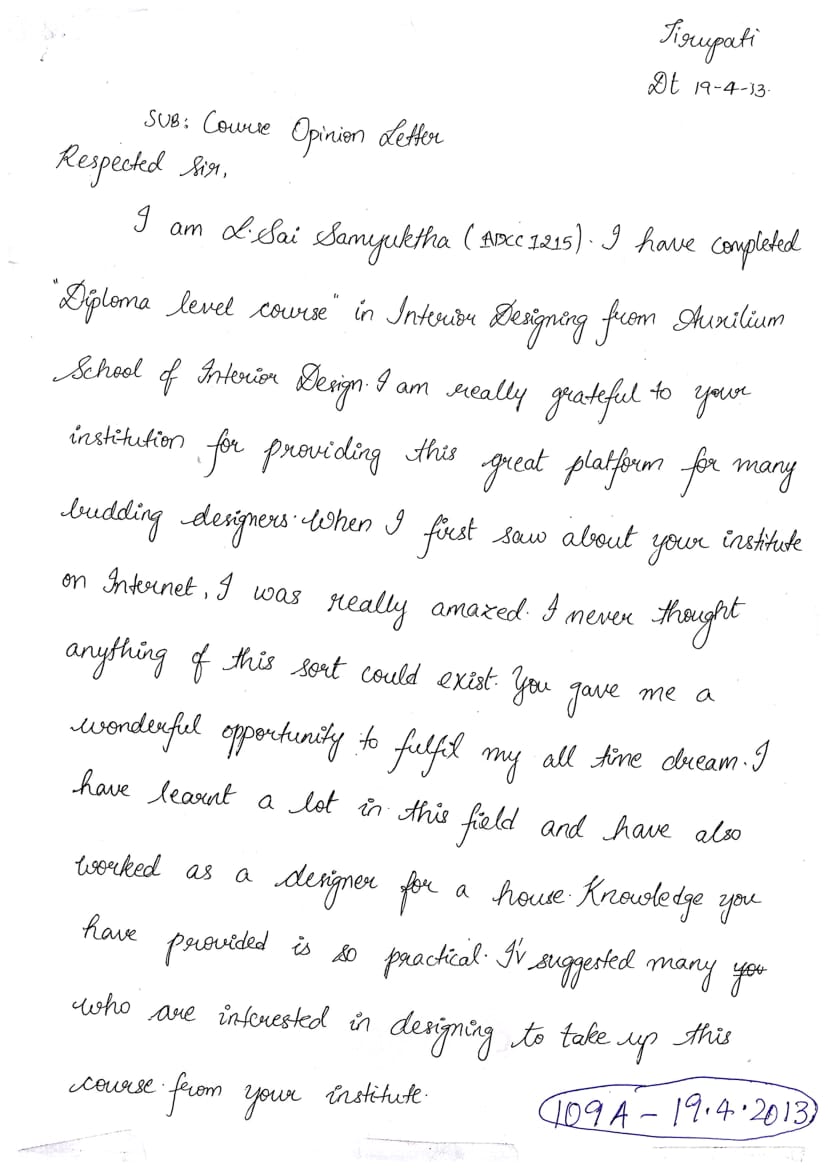 Tirupati
Dt 19-4-13.
SUB: Course Opinion Letter
Respected Sir,
I am L. Sai Samyuktha (ADCC 1215). I have completed
"Diploma level course" in Interior Designing from Auxilium
School of Interior Design. I am really grateful to your
institution for providing this great platform for many
budding designers. When I first saw about your institute
on Internet, I was really amazed. I never thought
anything of this sort could exist. You gave me a
wonderful opportunity to fulfil my all time dream. I
have learnt a lot in this field and have also
worked as a designer for a house. Knowledge you
have provided is so practical. I'v suggested many you
who are interested in designing to take up this
course from your institute.
109A - 19.4.2013